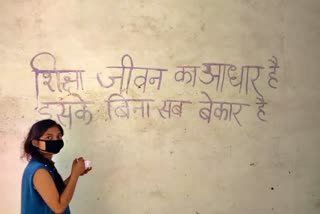 शिक्षा जीवन का आधार है
इसके बिना सब बेकार है